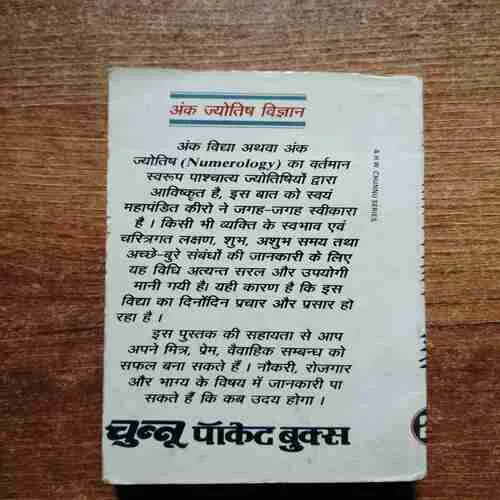 अंक ज्योतिष विज्ञान
अंक विद्या अथवा अंक
ज्योतिष (Numerology) का वर्तमान
स्वरूप पाश्चात्य ज्योतिषियों द्वारा
आविष्कृत है, इस बात को स्वयं
महापंडित कीरो ने जगह-जगह स्वीकारा
है । किसी भी व्यक्ति के स्वभाव एवं
चरित्रगत लक्षण, शुभ, अशुभ समय तथा
अच्छे-बुरे संबंधों की जानकारी के लिए
यह विधि अत्यन्त सरल और उपयोगी
मानी गयी है। यही कारण है कि इस
विद्या का दिनोंदिन प्रचार और प्रसार हो
रहा है ।
इस पुस्तक की सहायता से आप
अपने मित्र, प्रेम, वैवाहिक सम्बन्ध को
सफल बना सकते हैं । नौकरी, रोजगार
और भाग्य के विषय में जानकारी पा
सकते हैं कि कब उदय होगा ।
चुन्नू पॉकेट बुक्स
CHUNNU SERIES